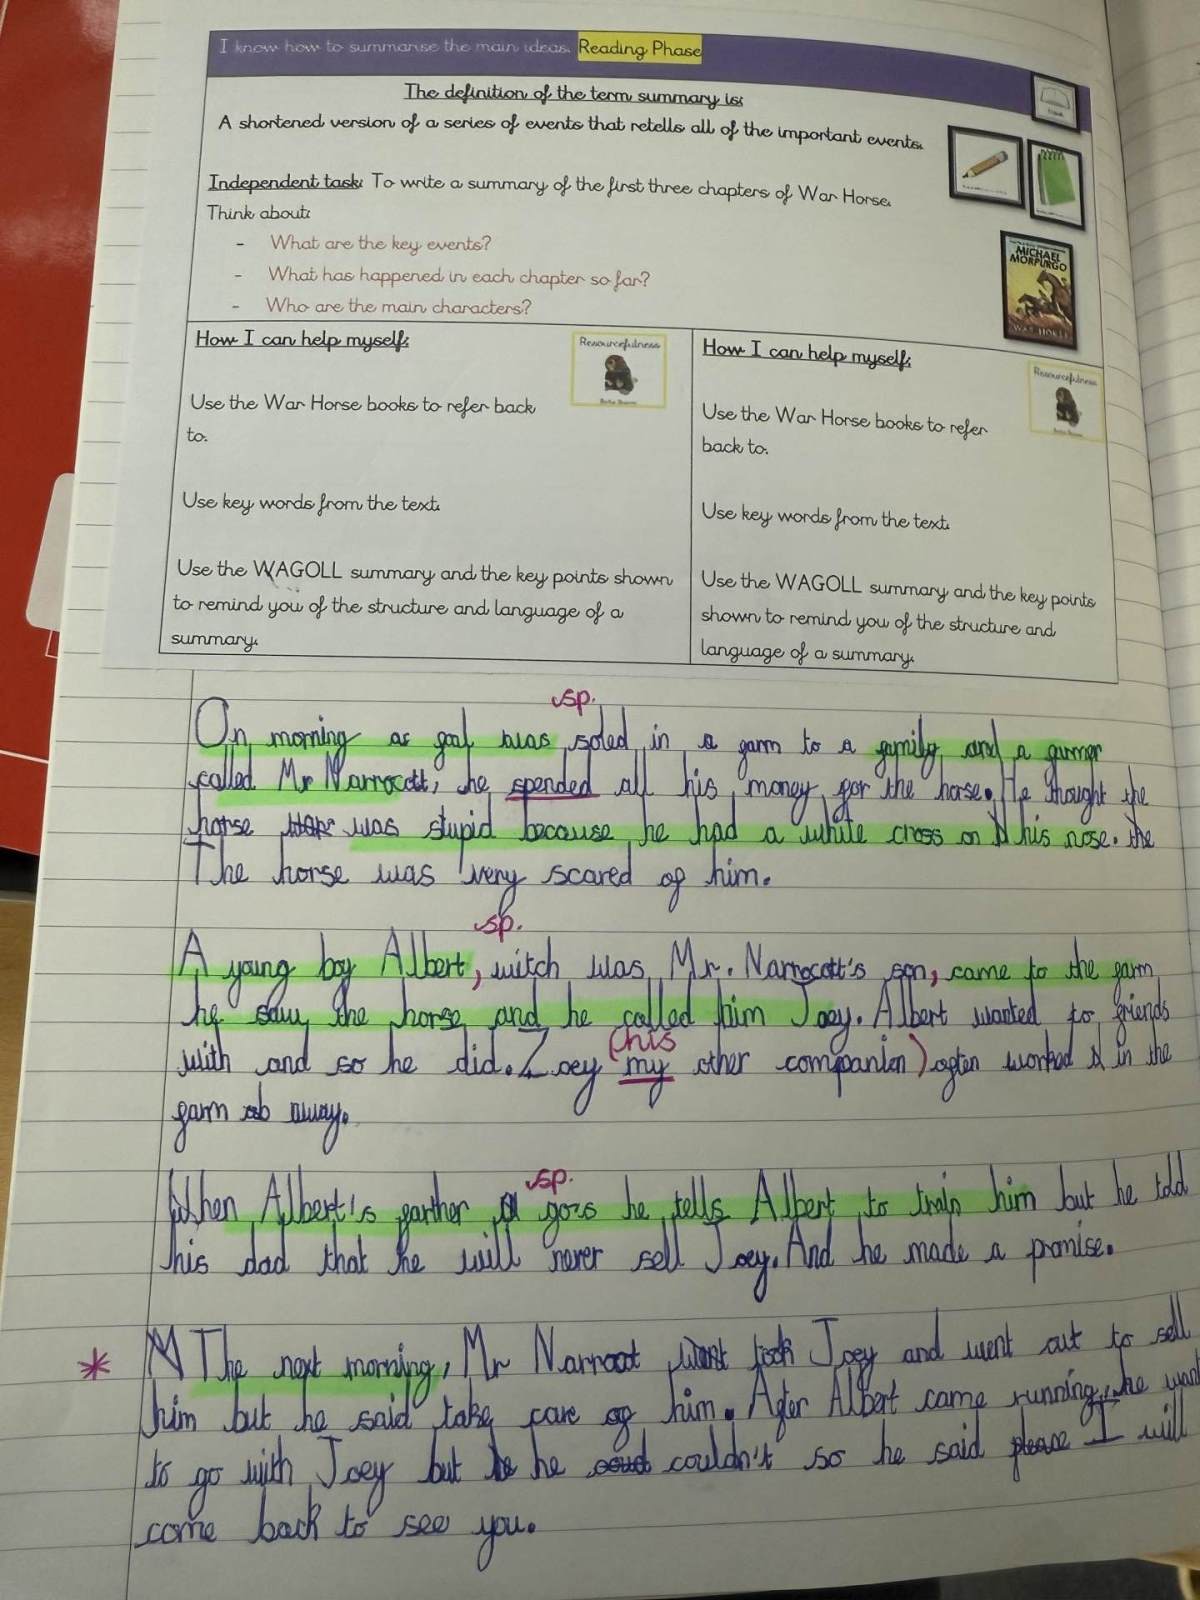 I know how to summarise the main ideas. Reading Phase
The definition of the term summary is:
A shortened version of a series of events that retells all of the important events.
Independent task: To write a summary of the first three chapters of War Horse.
Think about:
- What are the key events?
- What has happened in each chapter so far?
- Who are the main characters?
MICHAEL
MORPURGO
WAR HORSE
How I can help myself:
Resourcefulness
Use the War Horse books to refer back
to.
Use key words from the text.
Use the WAGOLL summary and the key points shown
to remind you of the structure and language of a
summary.
How I can help myself:
Resourcefulness
Use the War Horse books to refer
back to.
Use key words from the text.
Use the WAGOLL summary and the key points
shown to remind you of the structure and
language of a summary.
sp.
On morning as foal was soled in a farm to a family and a farmer
called Mr Narrocott, he spended all his money for the horse. He thought the
horse was stupid because he had a white cross on his nose. the
The horse was very scared of him.
sp.
A young boy Albert, witch was Mr. Narrocott's son, came to the farm
he saw the horse and he called him Joey. Albert wanted to friends
his
with and so he did. Zoey (my other companion) often worked in the
farm away.
sp.
When Albert's farther gos he tells Albert to train him but he told
his dad that he will never sell Joey. And he made a promise.
* The next morning, Mr Narrocot took Joey and went out to sell
him but he said take care of him. After Albert came running, he want
to go with Joey but he couldn't so he said please I will
come back to see you.